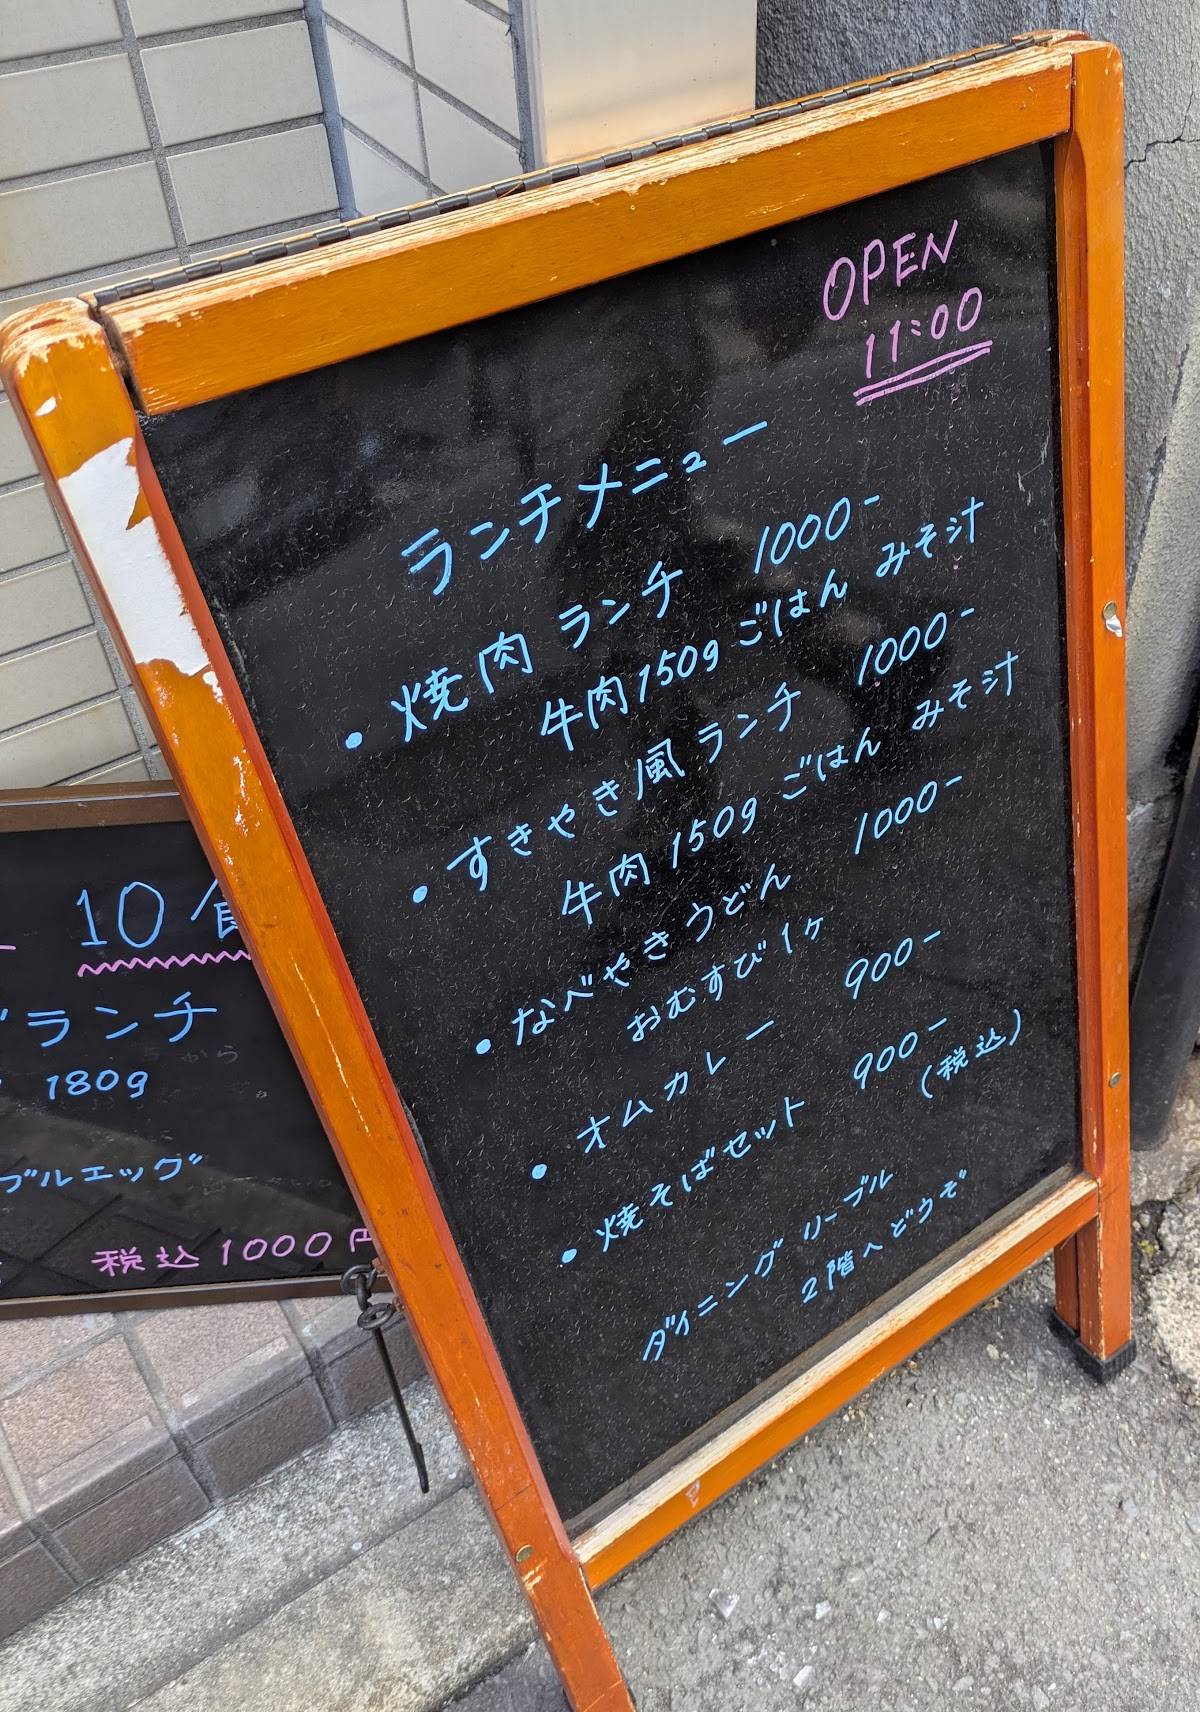 OPEN
11:00
ランチメニュー
・焼肉ランチ 1000-
牛肉150g ごはん みそ汁
・すきやき風ランチ 1000-
牛肉150g ごはん みそ汁
・なべやきうどん 1000-
おむすび1ヶ
・オムカレー 900-
・焼そばセット 900-
(税込)
ダイニング リーブル
2階へどうぞ
10食
ランチ
180g
ブルエッグ
税込1000円